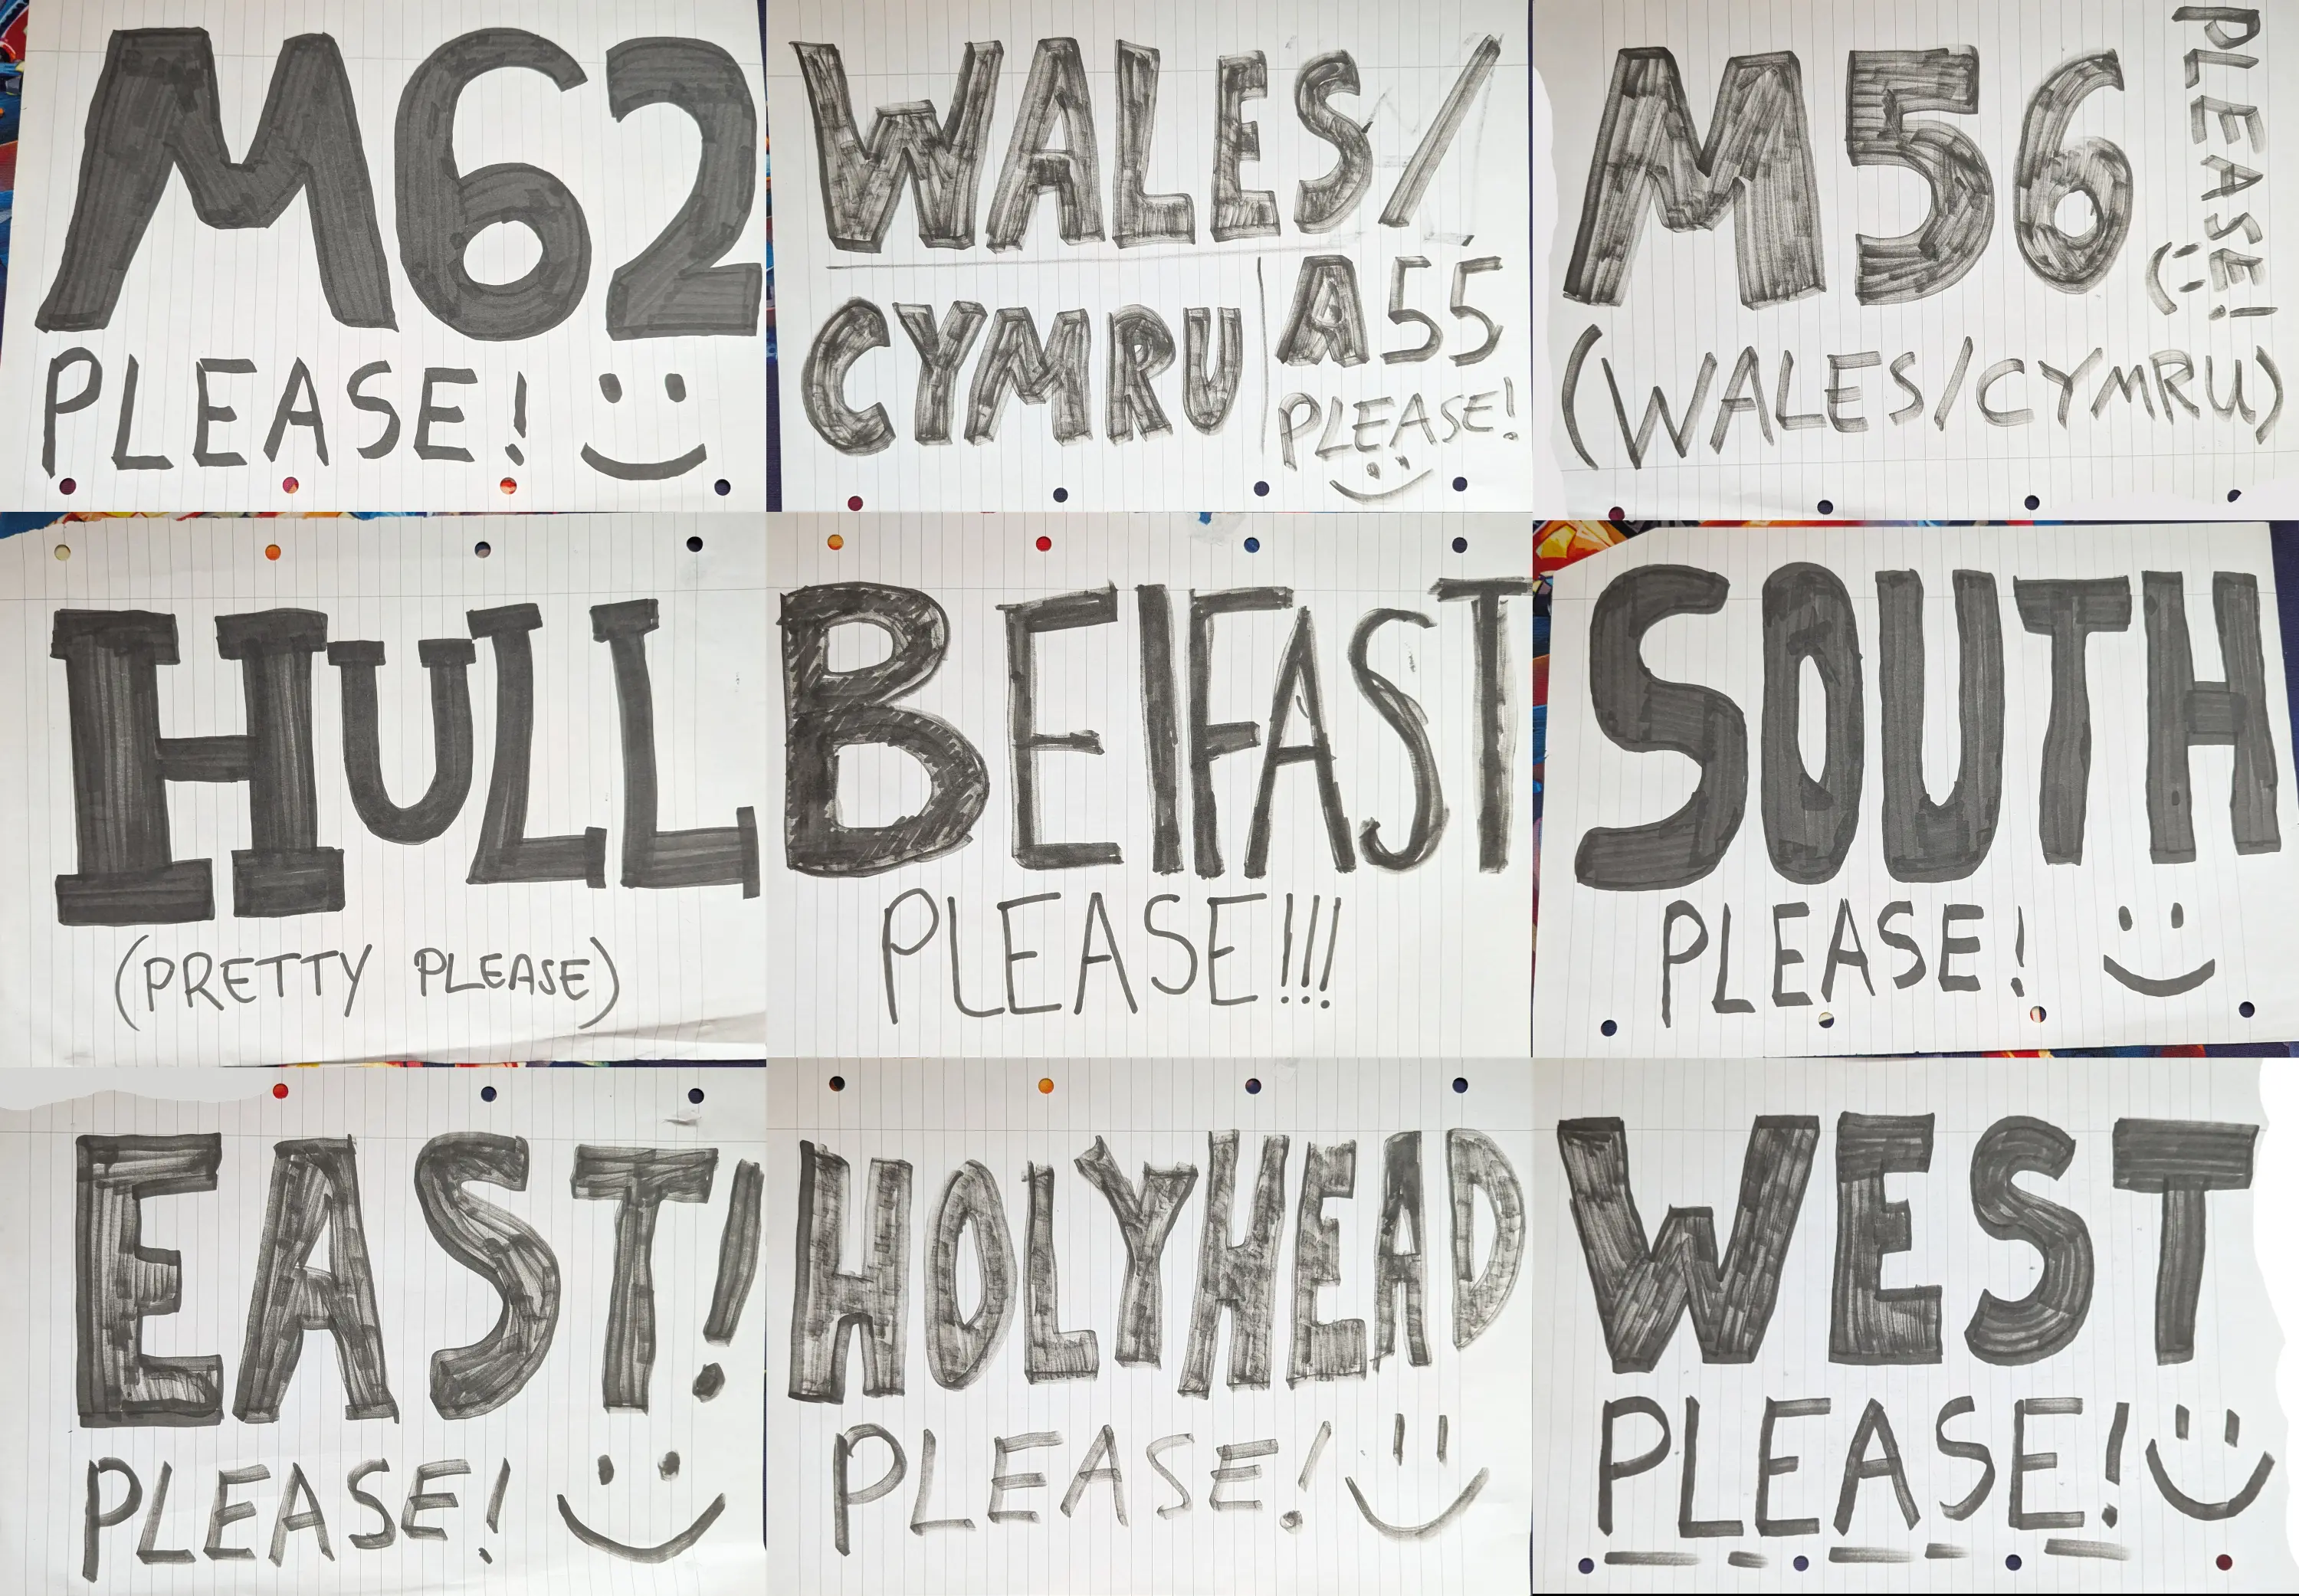 M62
PLEASE! :)
WALES/
CYMRU
A55
PLEASE!
:)
M56
(WALES/CYMRU)
PLEASE!
:)
HULL
(PRETTY PLEASE)
BElFAST
PLEASE!!!
SOUTH
PLEASE! :)
EAST!
PLEASE! :)
HOLYHEAD
PLEASE! :)
WEST
PLEASE! :)